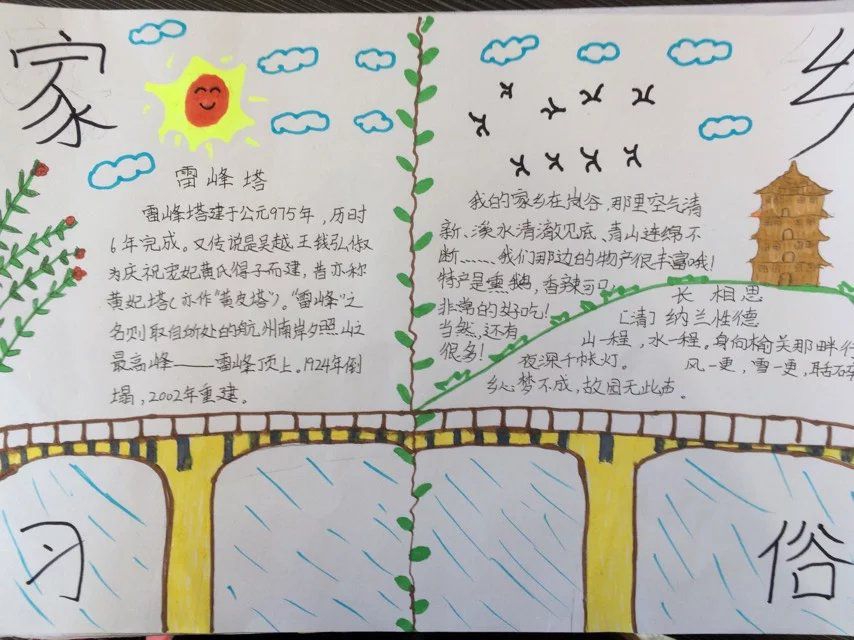 家
乡
雷峰塔
雷峰塔建于公元975年，历时
6年完成。又传说是吴越王钱弘俶
为庆祝宠妃黄氏得子而建，昔亦称
黄妃塔（亦作"黄皮塔"）。"雷峰"之
名则取自所处的杭州南岸夕照山之
最高峰——雷峰顶上。1924年倒
塌，2002年重建。
我的家乡在岚谷，那里空气清
新、溪水清澈见底、青山连绵不
断……我们那边的物产很丰富哦！
特产是熏鹅，香辣可口，
非常的好吃！
当然，还有
很多！
长相思
［清］纳兰性德
山一程，水一程。身向榆关那畔行
夜深千帐灯。
风一更，雪一更，聒碎
乡心梦不成，故园无此声。
习
俗